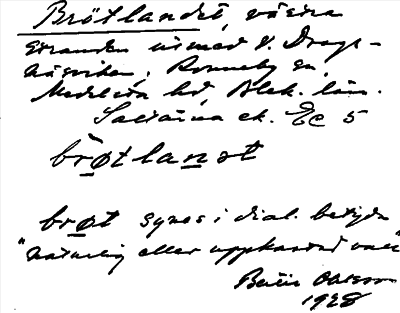 Brötlandet, västra
stranden invid V. Drags-
näsviken, Ronneby sn,
Medelsta hd, Blek. län.
ek. Ec 5
brøtlanət
brøt synes i dial. betyda
"naturlig eller uppkastad vall"
Bertil Ohlsson
1928